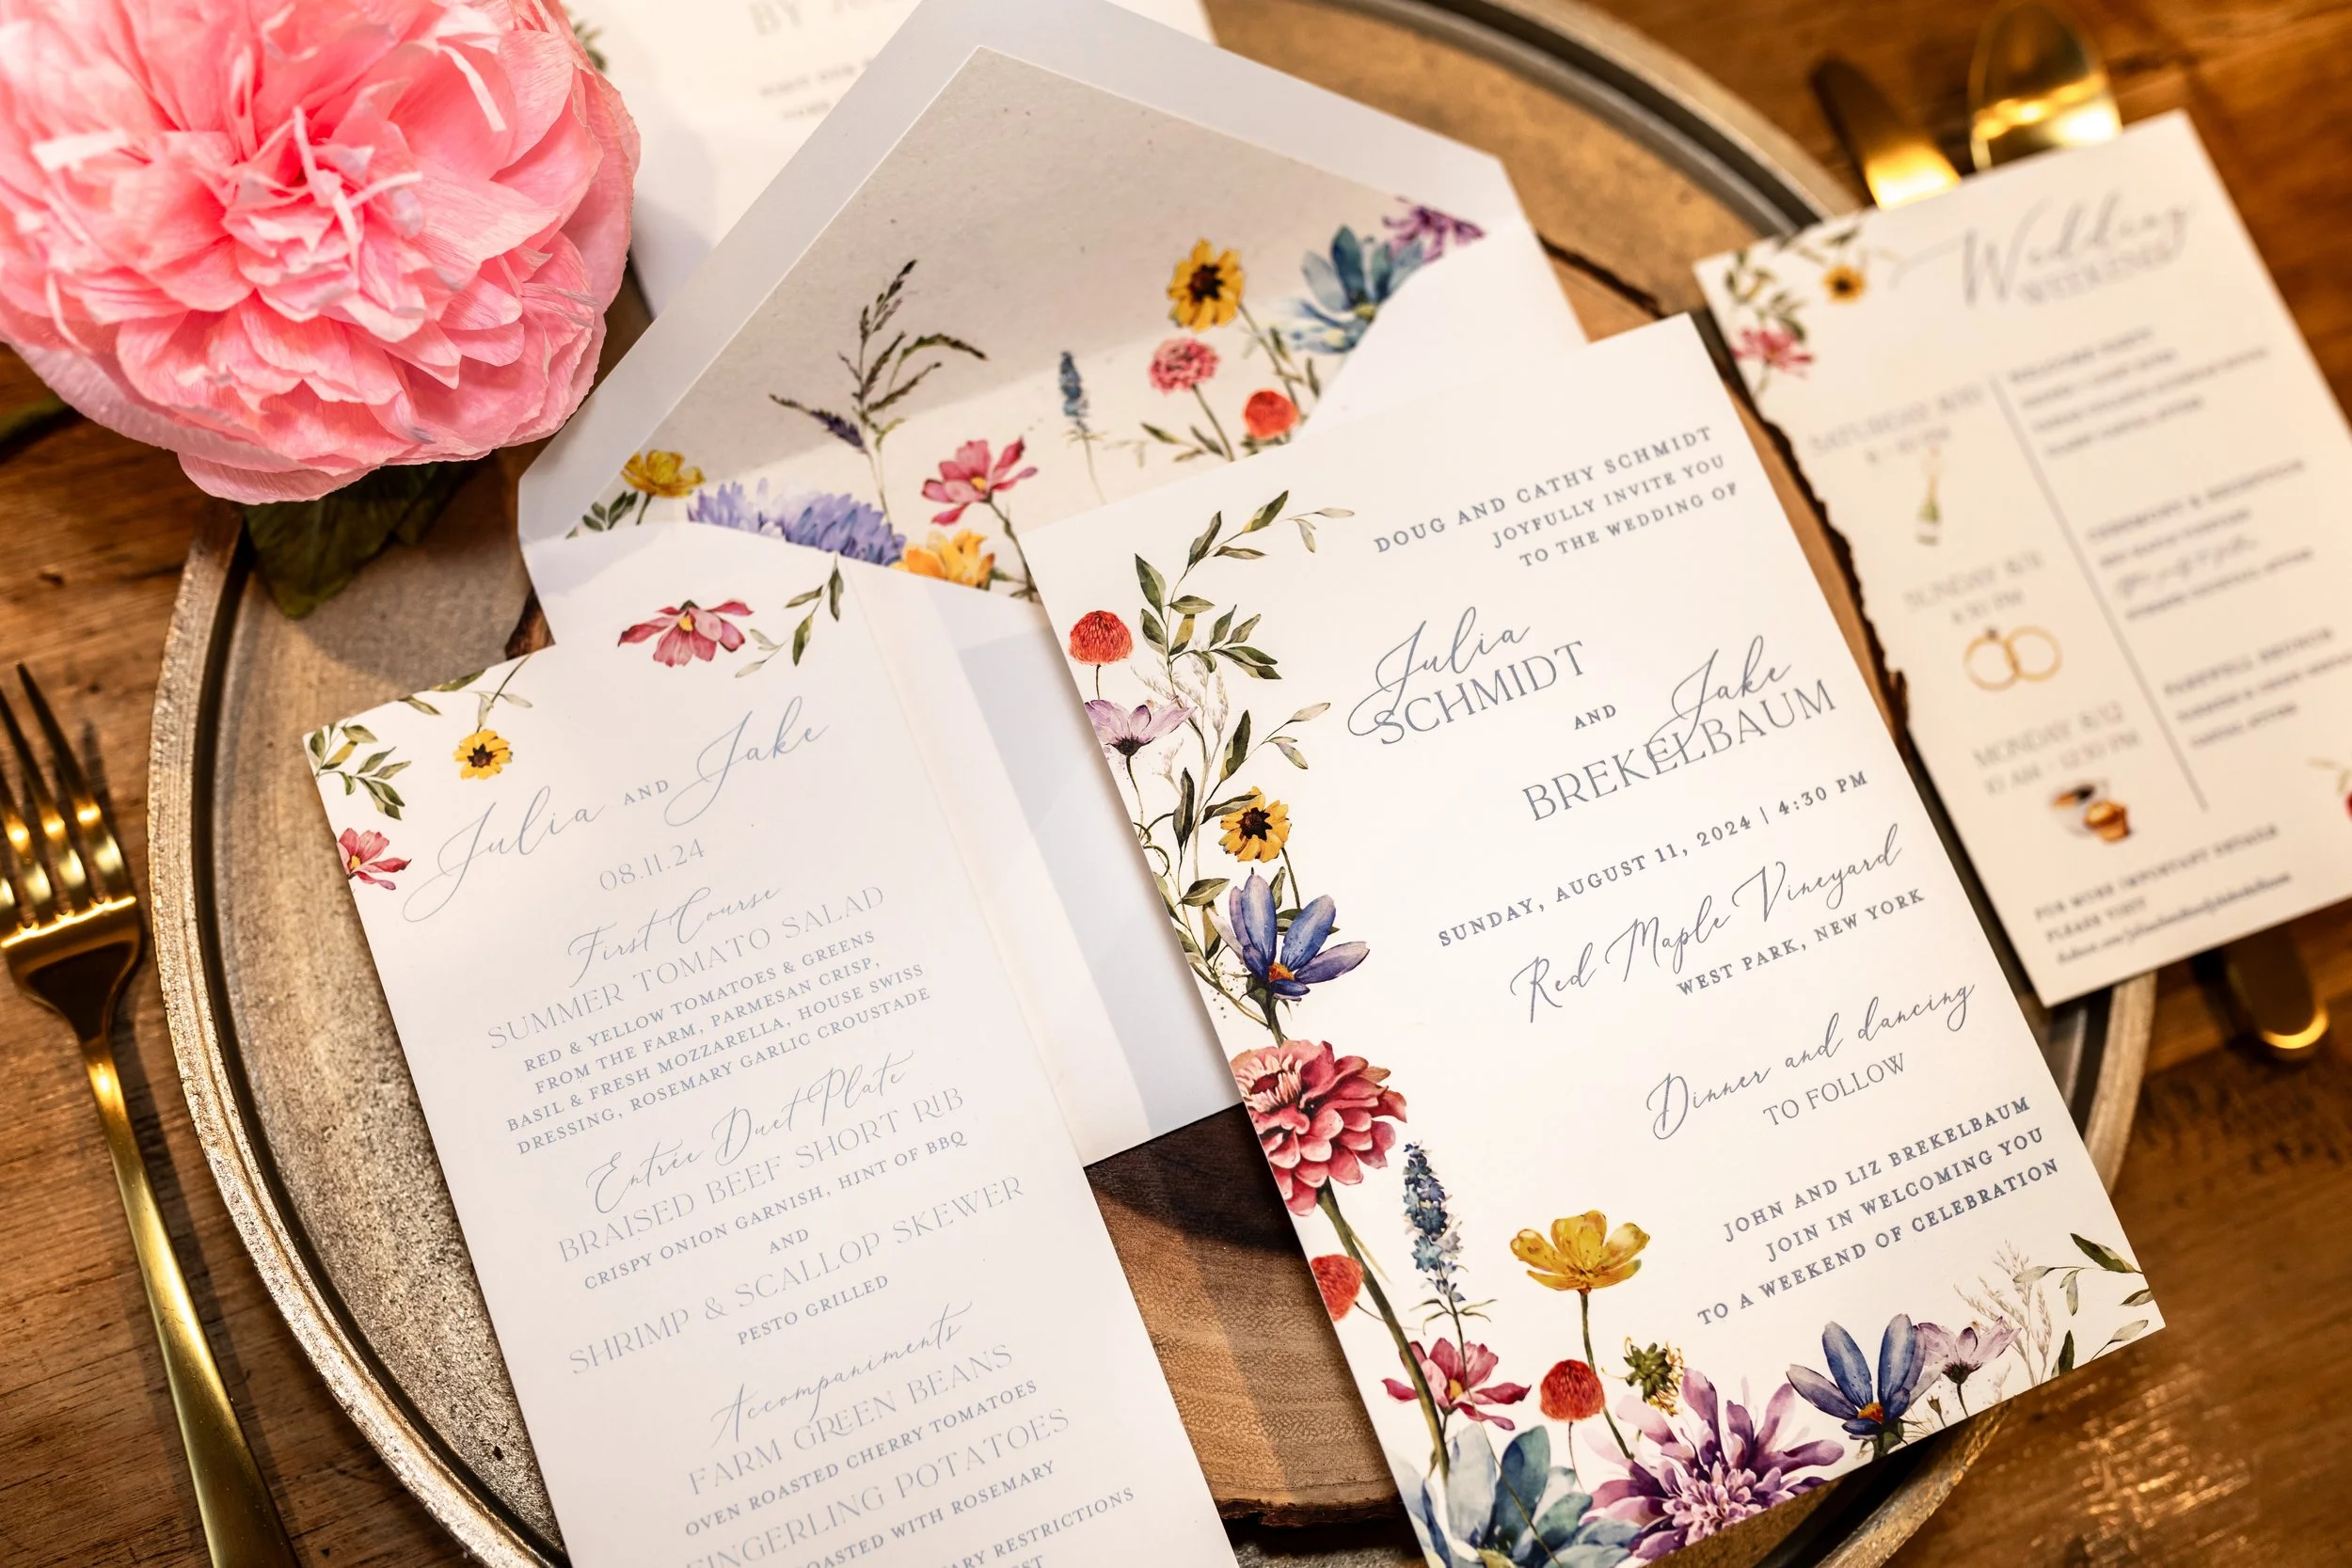 BY
Julia AND Jake
08.11.24
First Course
SUMMER TOMATO SALAD
RED & YELLOW TOMATOES & GREENS
FROM THE FARM, PARMESAN CRISP,
BASIL & FRESH MOZZARELLA, HOUSE SWISS
DRESSING, ROSEMARY GARLIC CROUSTADE
Entrée Duet Plate
BRAISED BEEF SHORT RIB
CRISPY ONION GARNISH, HINT OF BBQ
AND
SHRIMP & SCALLOP SKEWER
PESTO GRILLED
Accompaniments
FARM GREEN BEANS
OVEN ROASTED CHERRY TOMATOES
FINGERLING POTATOES
ROASTED WITH ROSEMARY
RESTRICTIONS
DOUG AND CATHY SCHMIDT
JOYFULLY INVITE YOU
TO THE WEDDING OF
Julia
SCHMIDT
AND
Jake
BREKELBAUM
SUNDAY, AUGUST 11, 2024 | 4:30 PM
Red Maple Vineyard
WEST PARK, NEW YORK
Dinner and dancing
TO FOLLOW
JOHN AND LIZ BREKELBAUM
JOIN IN WELCOMING YOU
TO A WEEKEND OF CELEBRATION
Wedding
WEEKEND
SATURDAY 8/10
SUNDAY 8/11
4:30 PM
MONDAY, 8/12
10 AM - 12:30 PM
FOR MORE IMPORTANT DETAILS
PLEASE VISIT